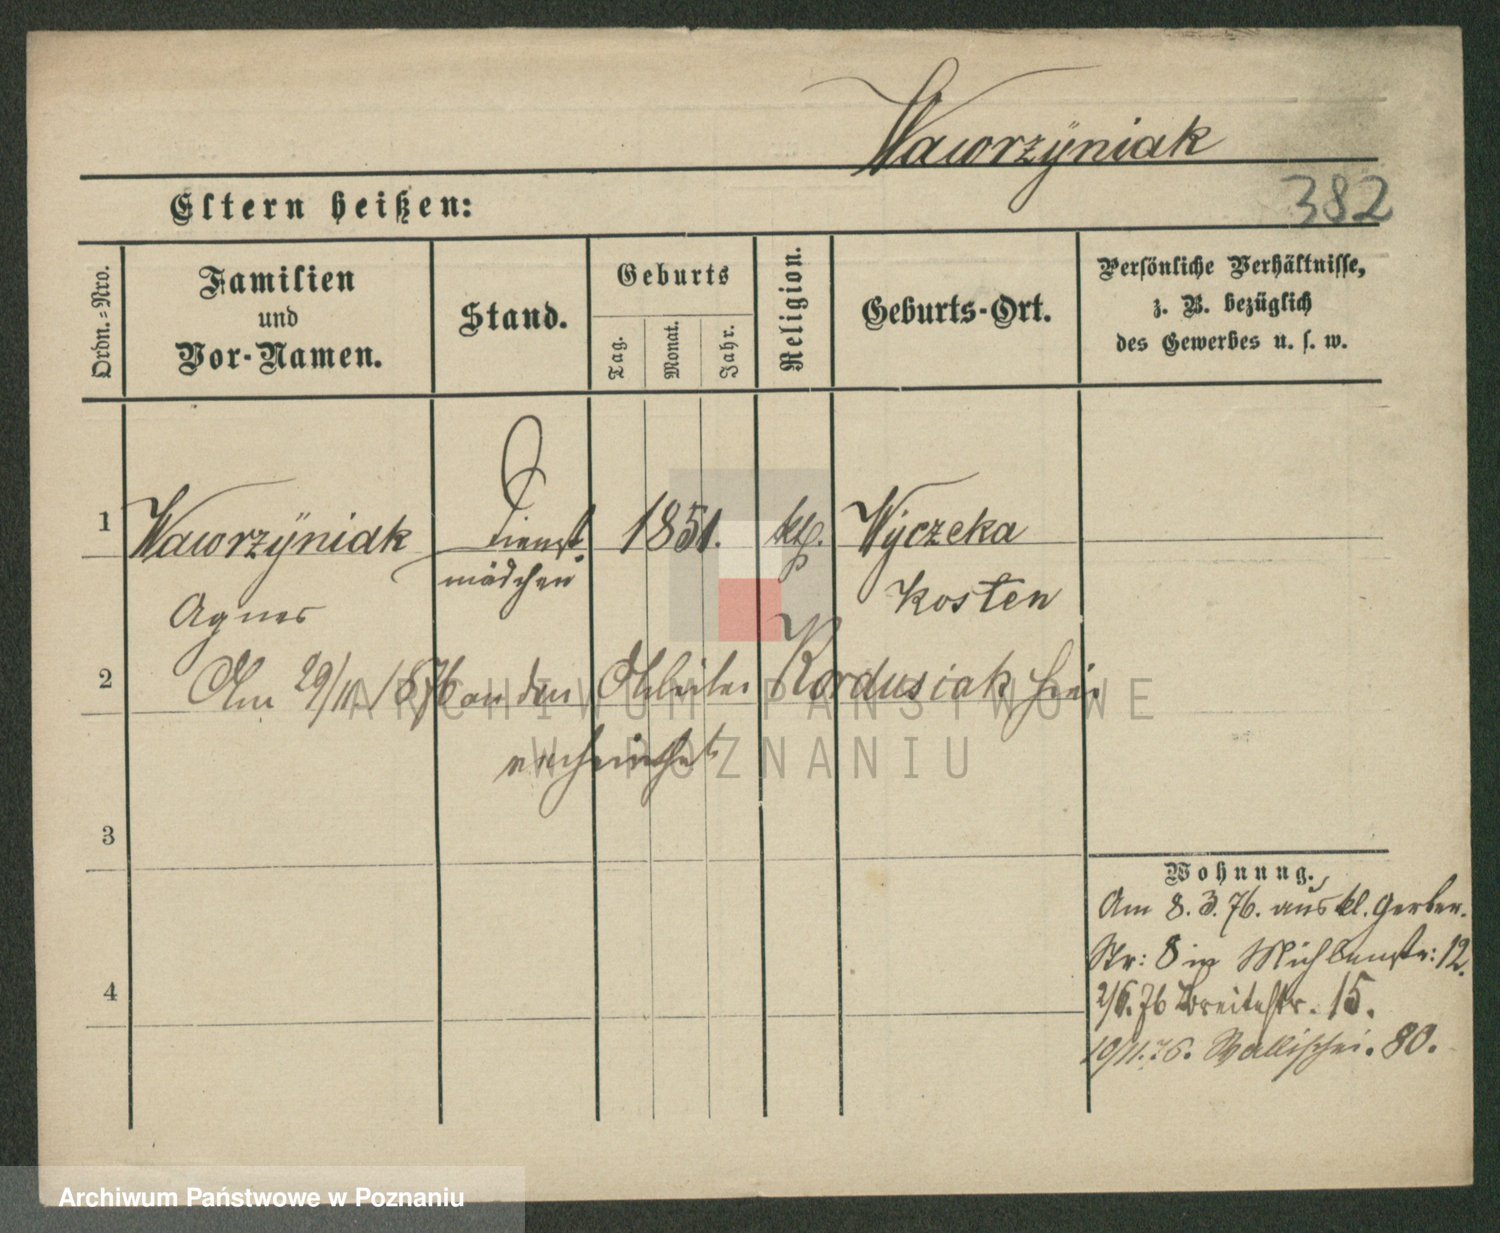 Wawrzÿniak
382
Eltern heißen:
Ordn.-Nro.
Familien
und
Vor-Namen.
Stand.
Geburts
Tag.
Monat.
Jahr.
Religion.
Geburts-Ort.
Persönliche Verhältnisse,
z. B. bezüglich
des Gewerbes u. s. w.
1
Wawrzÿniak
Agnes
Dienst
mädchen
1851.
kth.
Wyczeka
Kosten
2
Am 29/11 1876 an den Arbeiter Kordusiak hier
verheirathet
3
4
Wohnung.
Am 8.3.76. aus kl. Gerber-
Str: 8 in Mühlenstr: 12.
2/6.76 Breitestr. 15.
10/11.76. Wallischei. 80.
ARCHIWUM PAŃSTWOWE
W POZNANIU
Archiwum Państwowe w Poznaniu